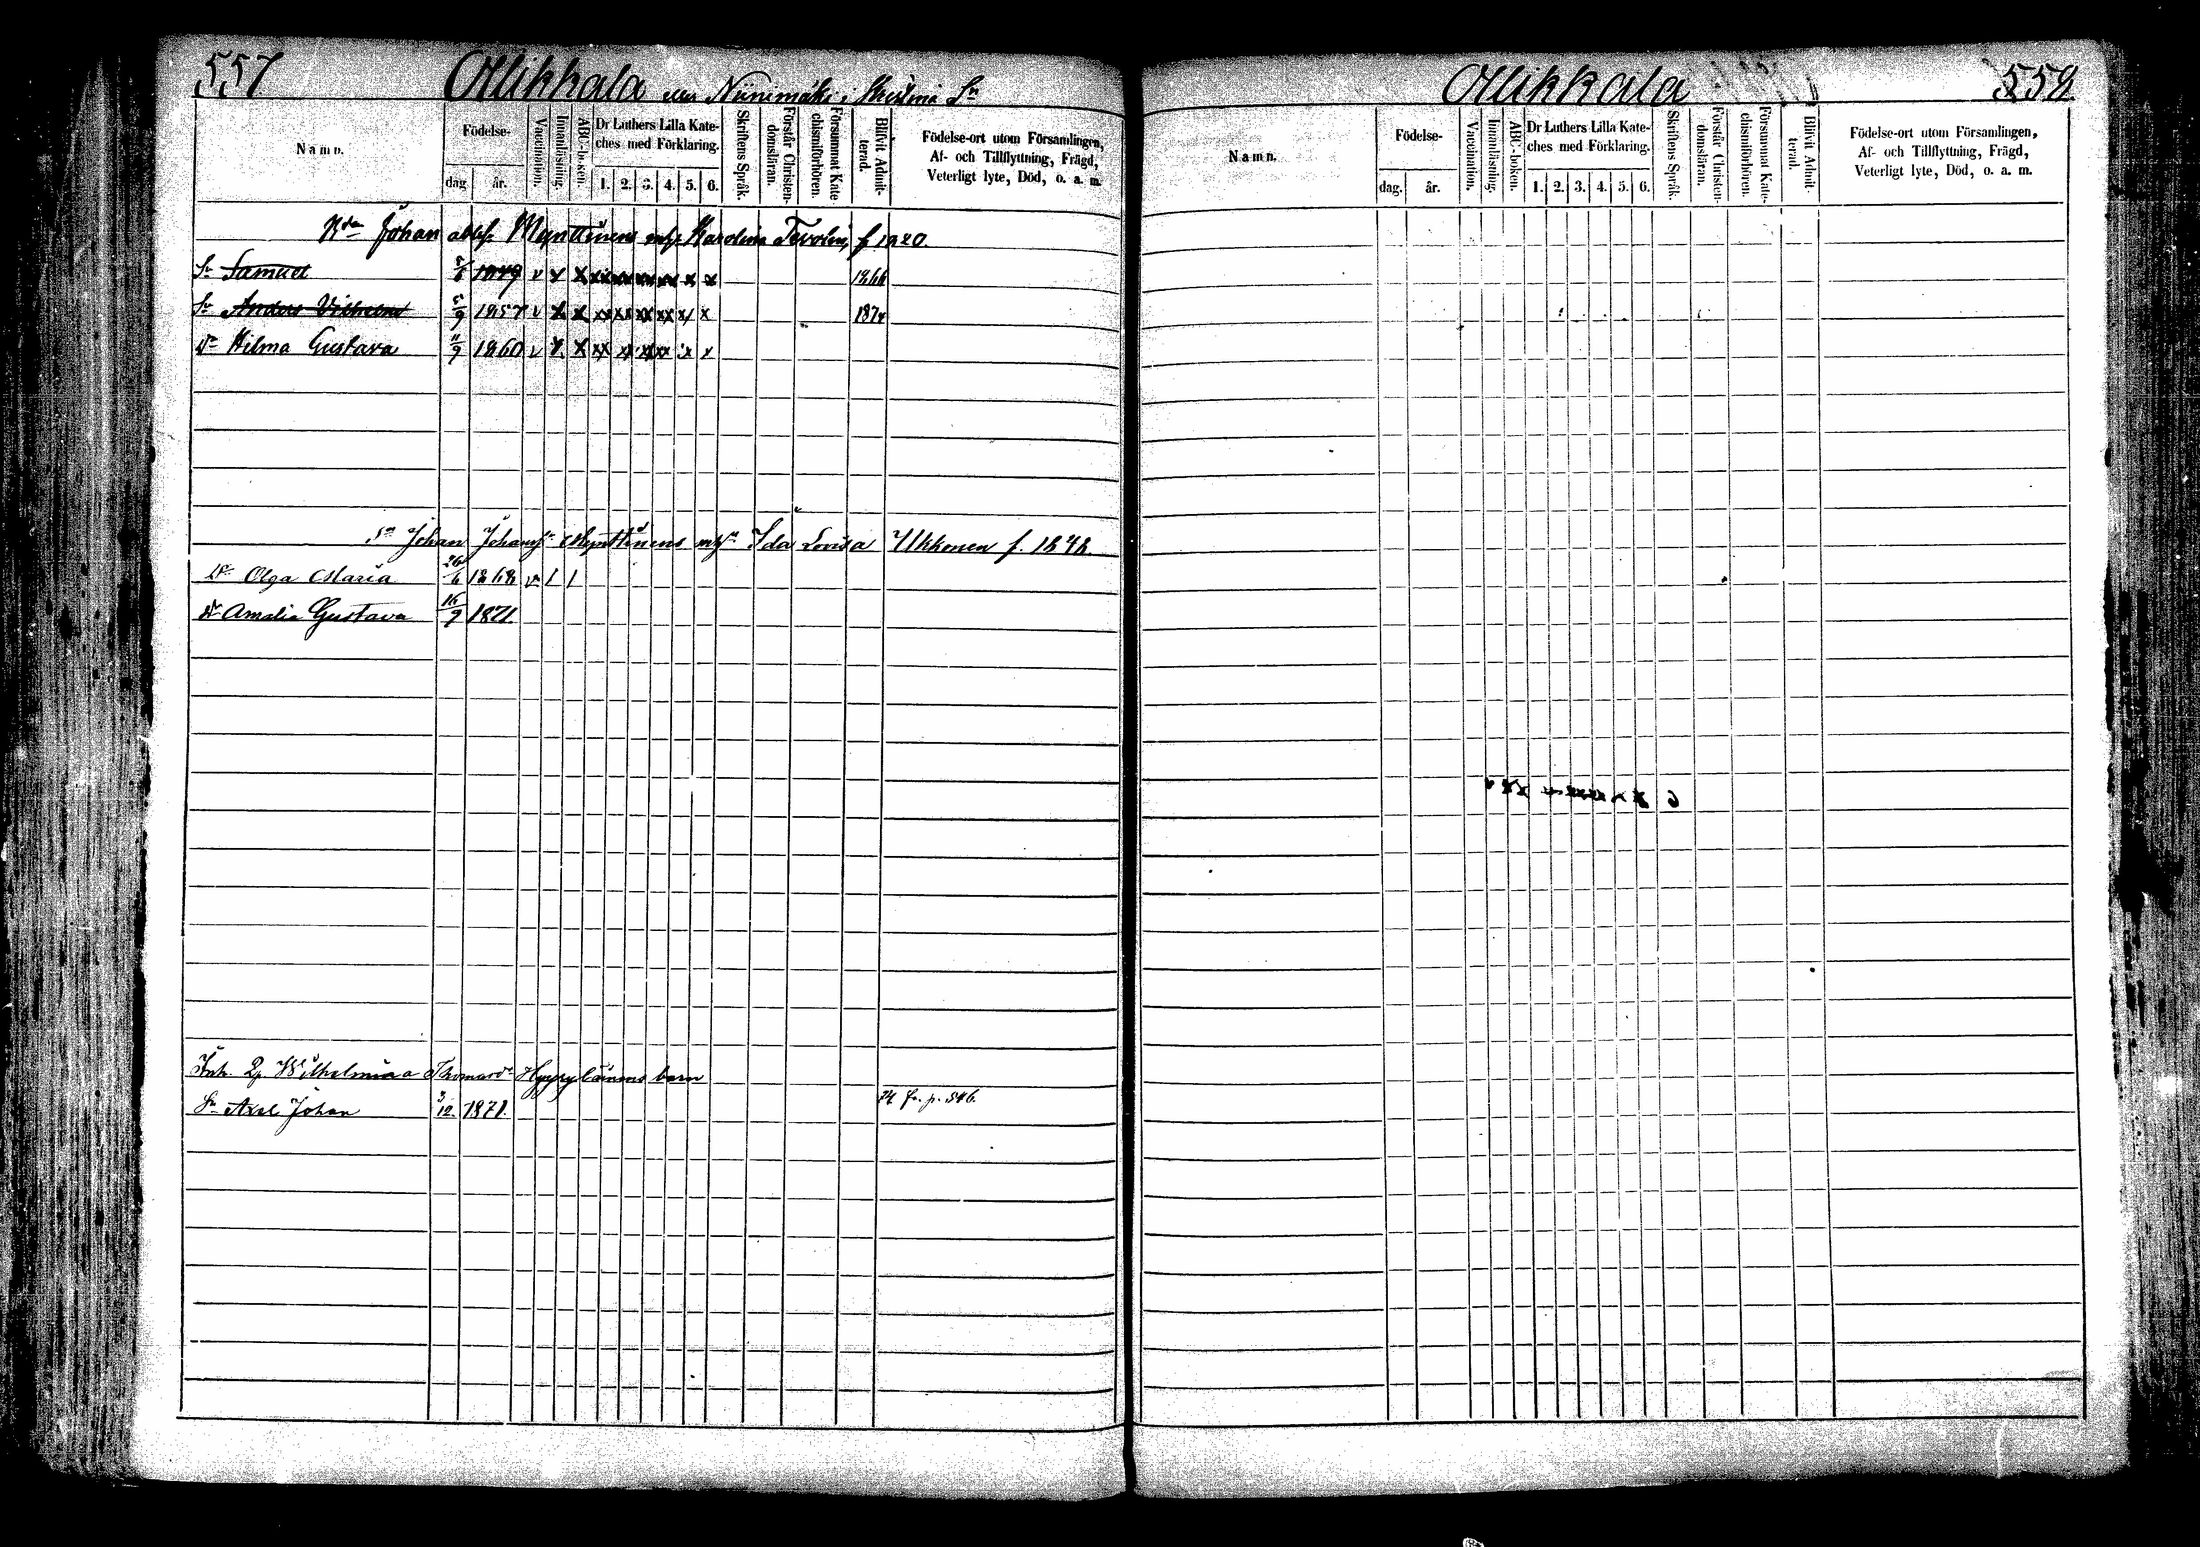 557 Ollikkala Niinimäki i
Namn.
Födelse-
dag år.
Vaccination.
Innanläsning.
ABC-boken.
Dr Luthers Lilla Kate-
ches med Förklaring.
1. 2. 3. 4. 5. 6.
Skriftens Språk.
Förstår Christen-
domsläran.
Försummat Kate-
chismiförhören.
Blifvit Admit-
terad.
Födelse-ort utom Församlingen,
Af- och Tillflyttning, Frägd,
Veterligt lyte, Död, o. a. m.
Johan Mynttinens Karolina f 1820.
Sn Samuel 1849 v x x xx xx xx xx x x 1866
Sn Anders Vilhelm 5/9 1857 v x x xx xx xx xx x x 1874
Dr Hilma Gustava 11/9 1860 v x x xx xx xx xx x x
Sn Johan Johans Mynttinens Ida Lovisa Ukkonen f. 1848
Dr Olga Maria 26/6 1868 v / /
Dr Amalia Gustava 16/9 1871.
Inh. Wilhelmina Thomasdr barn
Sn Axel Johan 3/12 1871. fr. p. 546.
Ollikkala 558
Namn.
Födelse-
dag. år.
Vaccination.
Innanläsning.
ABC-boken.
Dr Luthers Lilla Kate-
ches med Förklaring.
1. 2. 3. 4. 5. 6.
Skriftens Språk.
Förstår Christen-
domsläran.
Försummat Kate-
chismiförhören.
Blifvit Admit-
terad.
Födelse-ort utom Församlingen,
Af- och Tillflyttning, Frägd,
Veterligt lyte, Död, o. a. m.